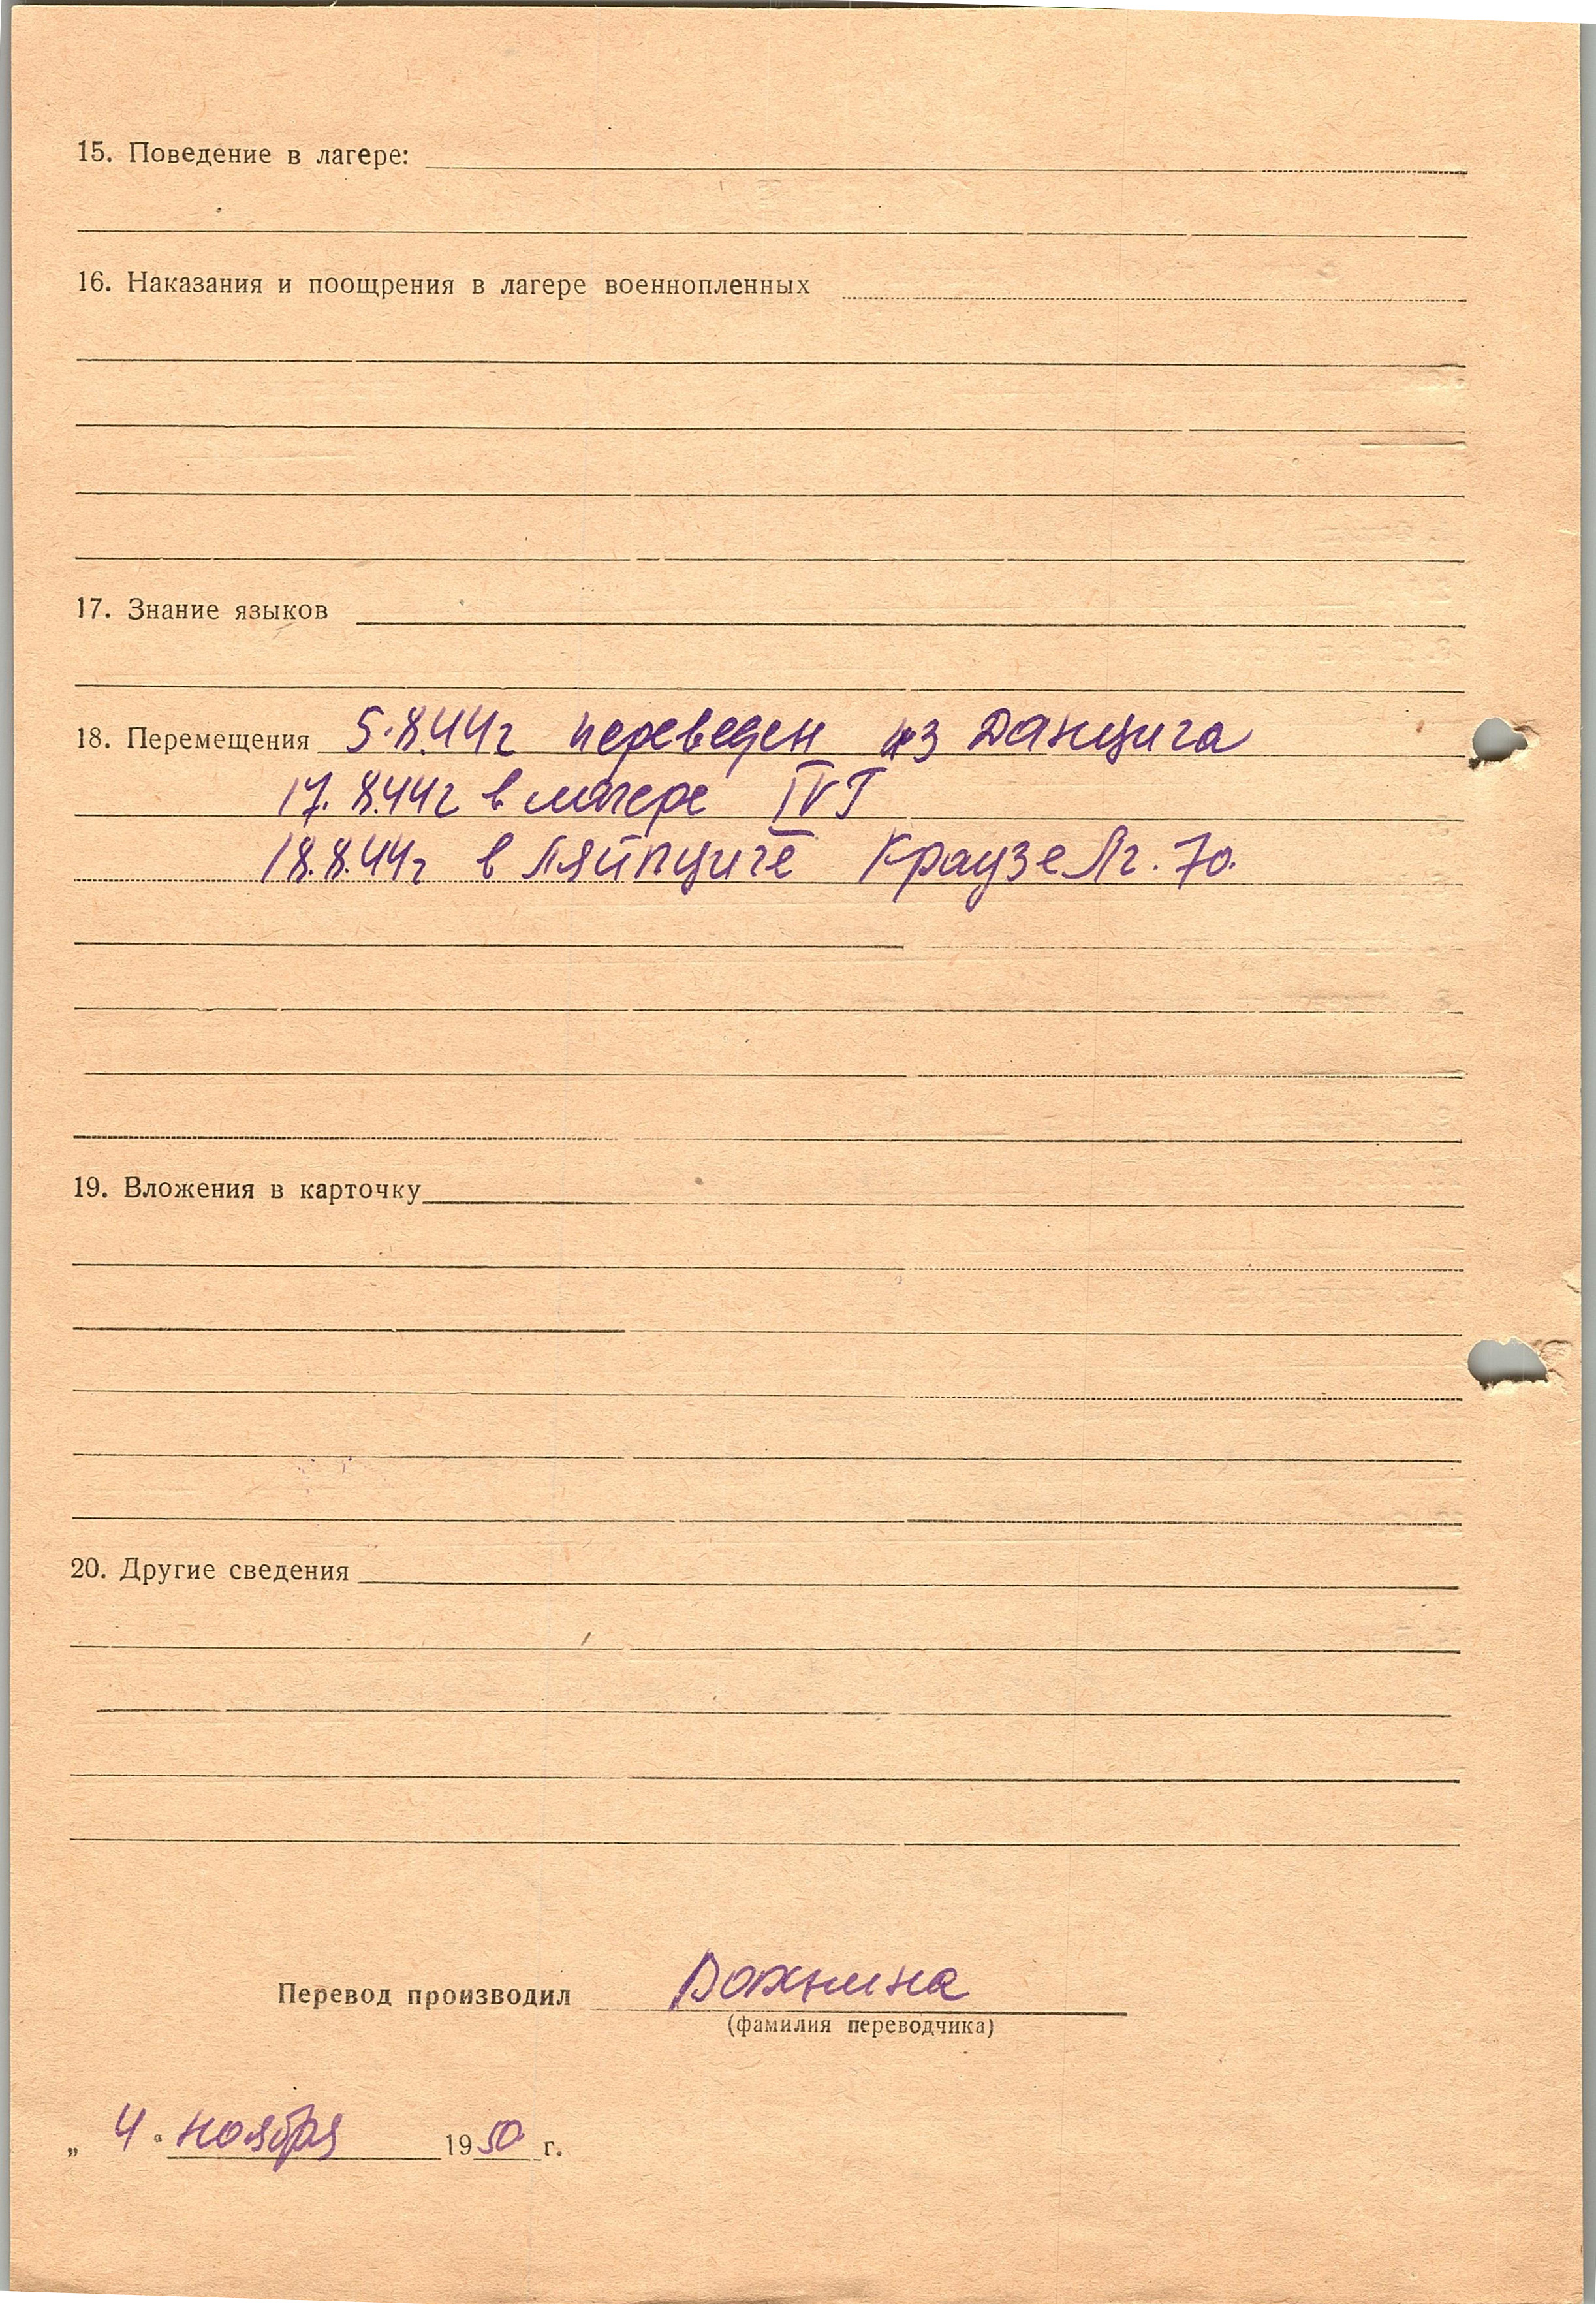 15. Поведение в лагере:
16. Наказания и поощрения в лагере военнопленных
17. Знание языков
18. Перемещения 5.8.44г переведен из Данцига
17.8.44г в лагере IV Г
18.8.44г в Ляйпциге Краузе Лг. 70.
19. Вложения в карточку
20. Другие сведения
Перевод производил
(фамилия переводчика)
„ 4 " ноября 1950 г.